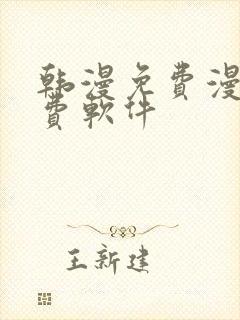 韩漫免費漫
費軟件
王新建